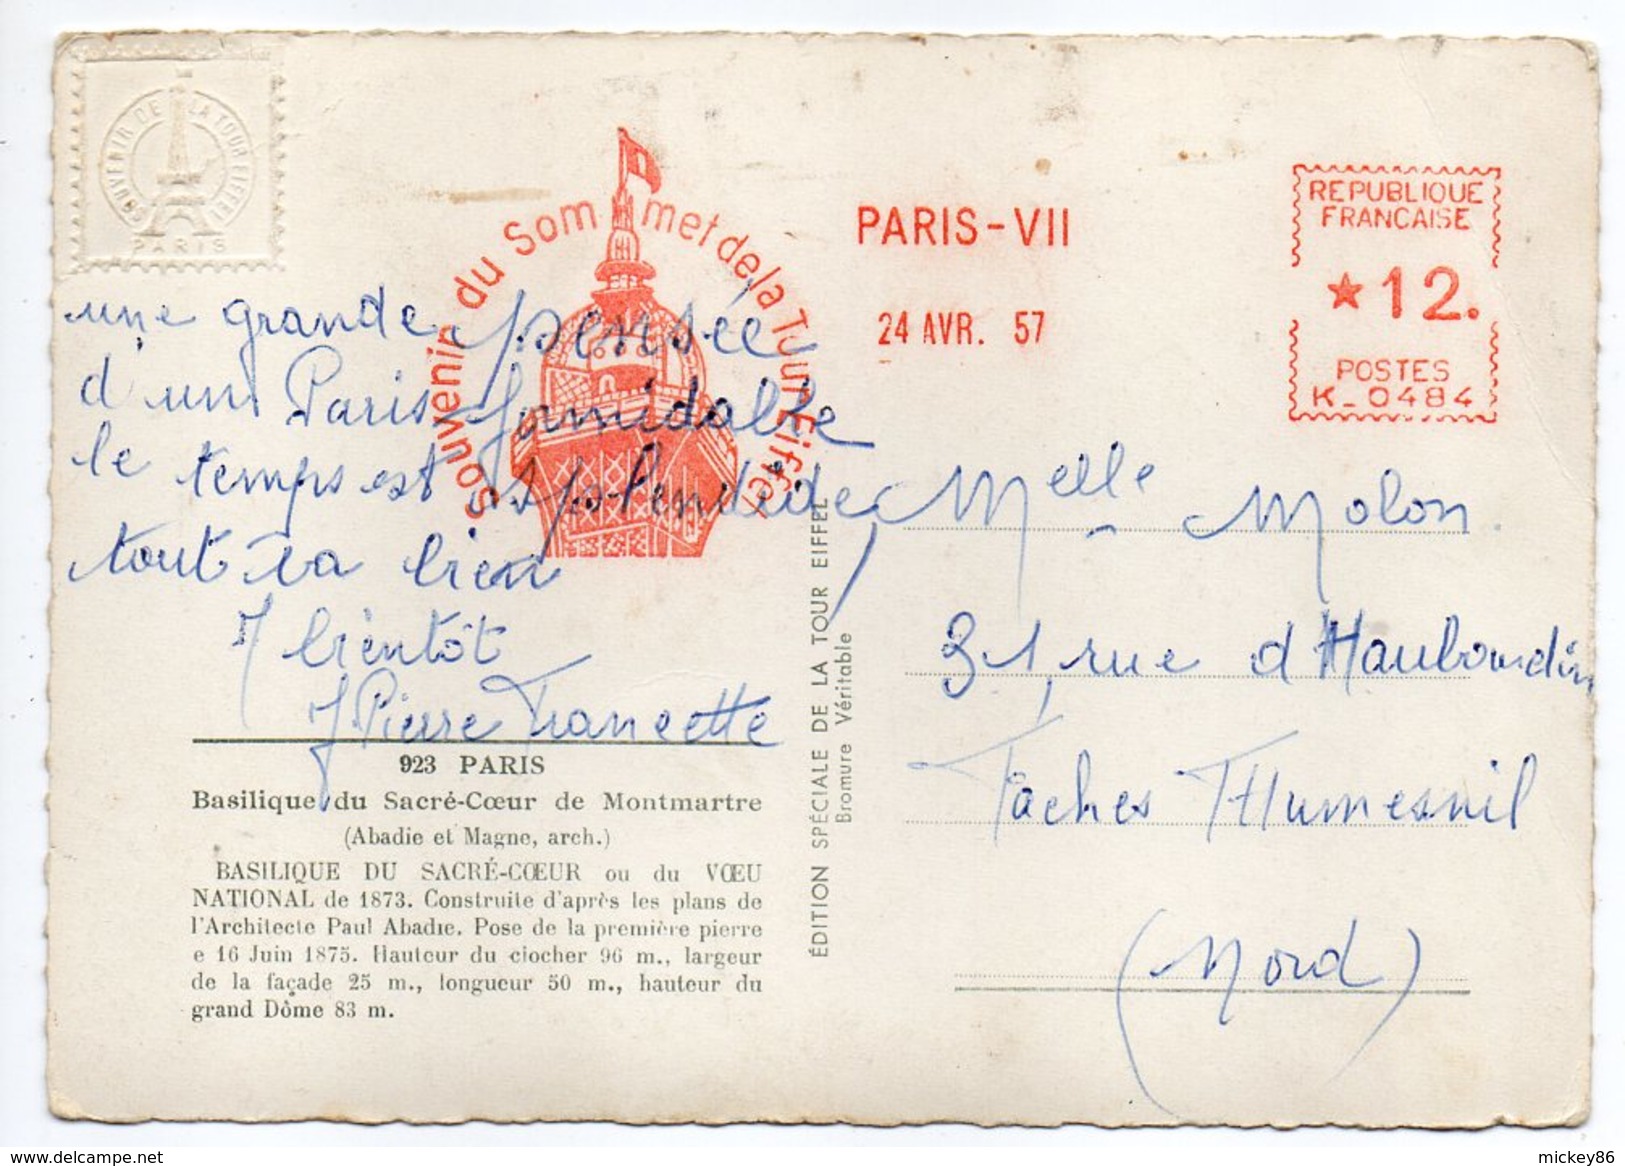 SOUVENIR DE LA TOUR EIFFEL
PARIS
Souvenir du Sommet de la Tour Eiffel
PARIS - VII
24 AVR. 57
REPUBLIQUE
FRANCAISE
★12.
POSTES
K_0484
une grande pensée
d'un Paris formidable
le temps est splendide,
tout va bien
A bientôt
J Pierre Francette
923 PARIS
Basilique du Sacré-Cœur de Montmartre
(Abadie et Magne, arch.)
BASILIQUE DU SACRÉ-CŒUR ou du VŒU
NATIONAL de 1873. Construite d'après les plans de
l'Architecte Paul Abadie. Pose de la première pierre
e 16 Juin 1875. Hauteur du clocher 96 m., largeur
de la façade 25 m., longueur 50 m., hauteur du
grand Dôme 83 m.
ÉDITION SPÉCIALE DE LA TOUR EIFFEL
Bromure Véritable
Melle Molon
31, rue d'Haubourdin
Faches Thumesnil
(Nord)
delcampe.net
mickey86